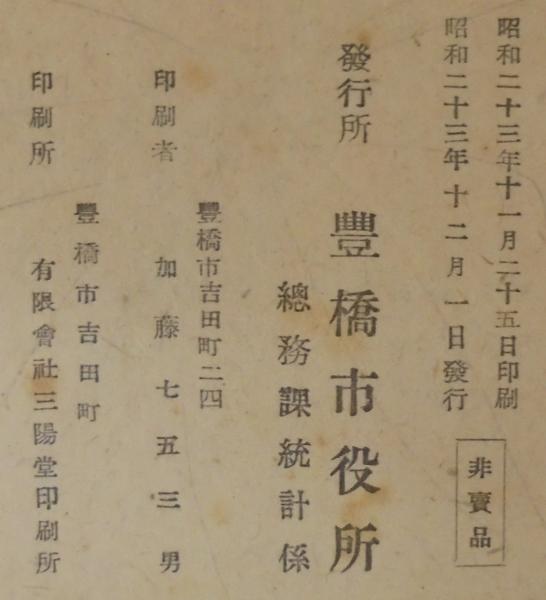 昭和二十三年十一月二十五日印刷
昭和二十三年十二月一日發行
非賣品
發行所　豐橋市役所
總務課統計係
豐橋市吉田町二四
印刷者　加藤七五三男
豐橋市吉田町
印刷所　有限會社三陽堂印刷所